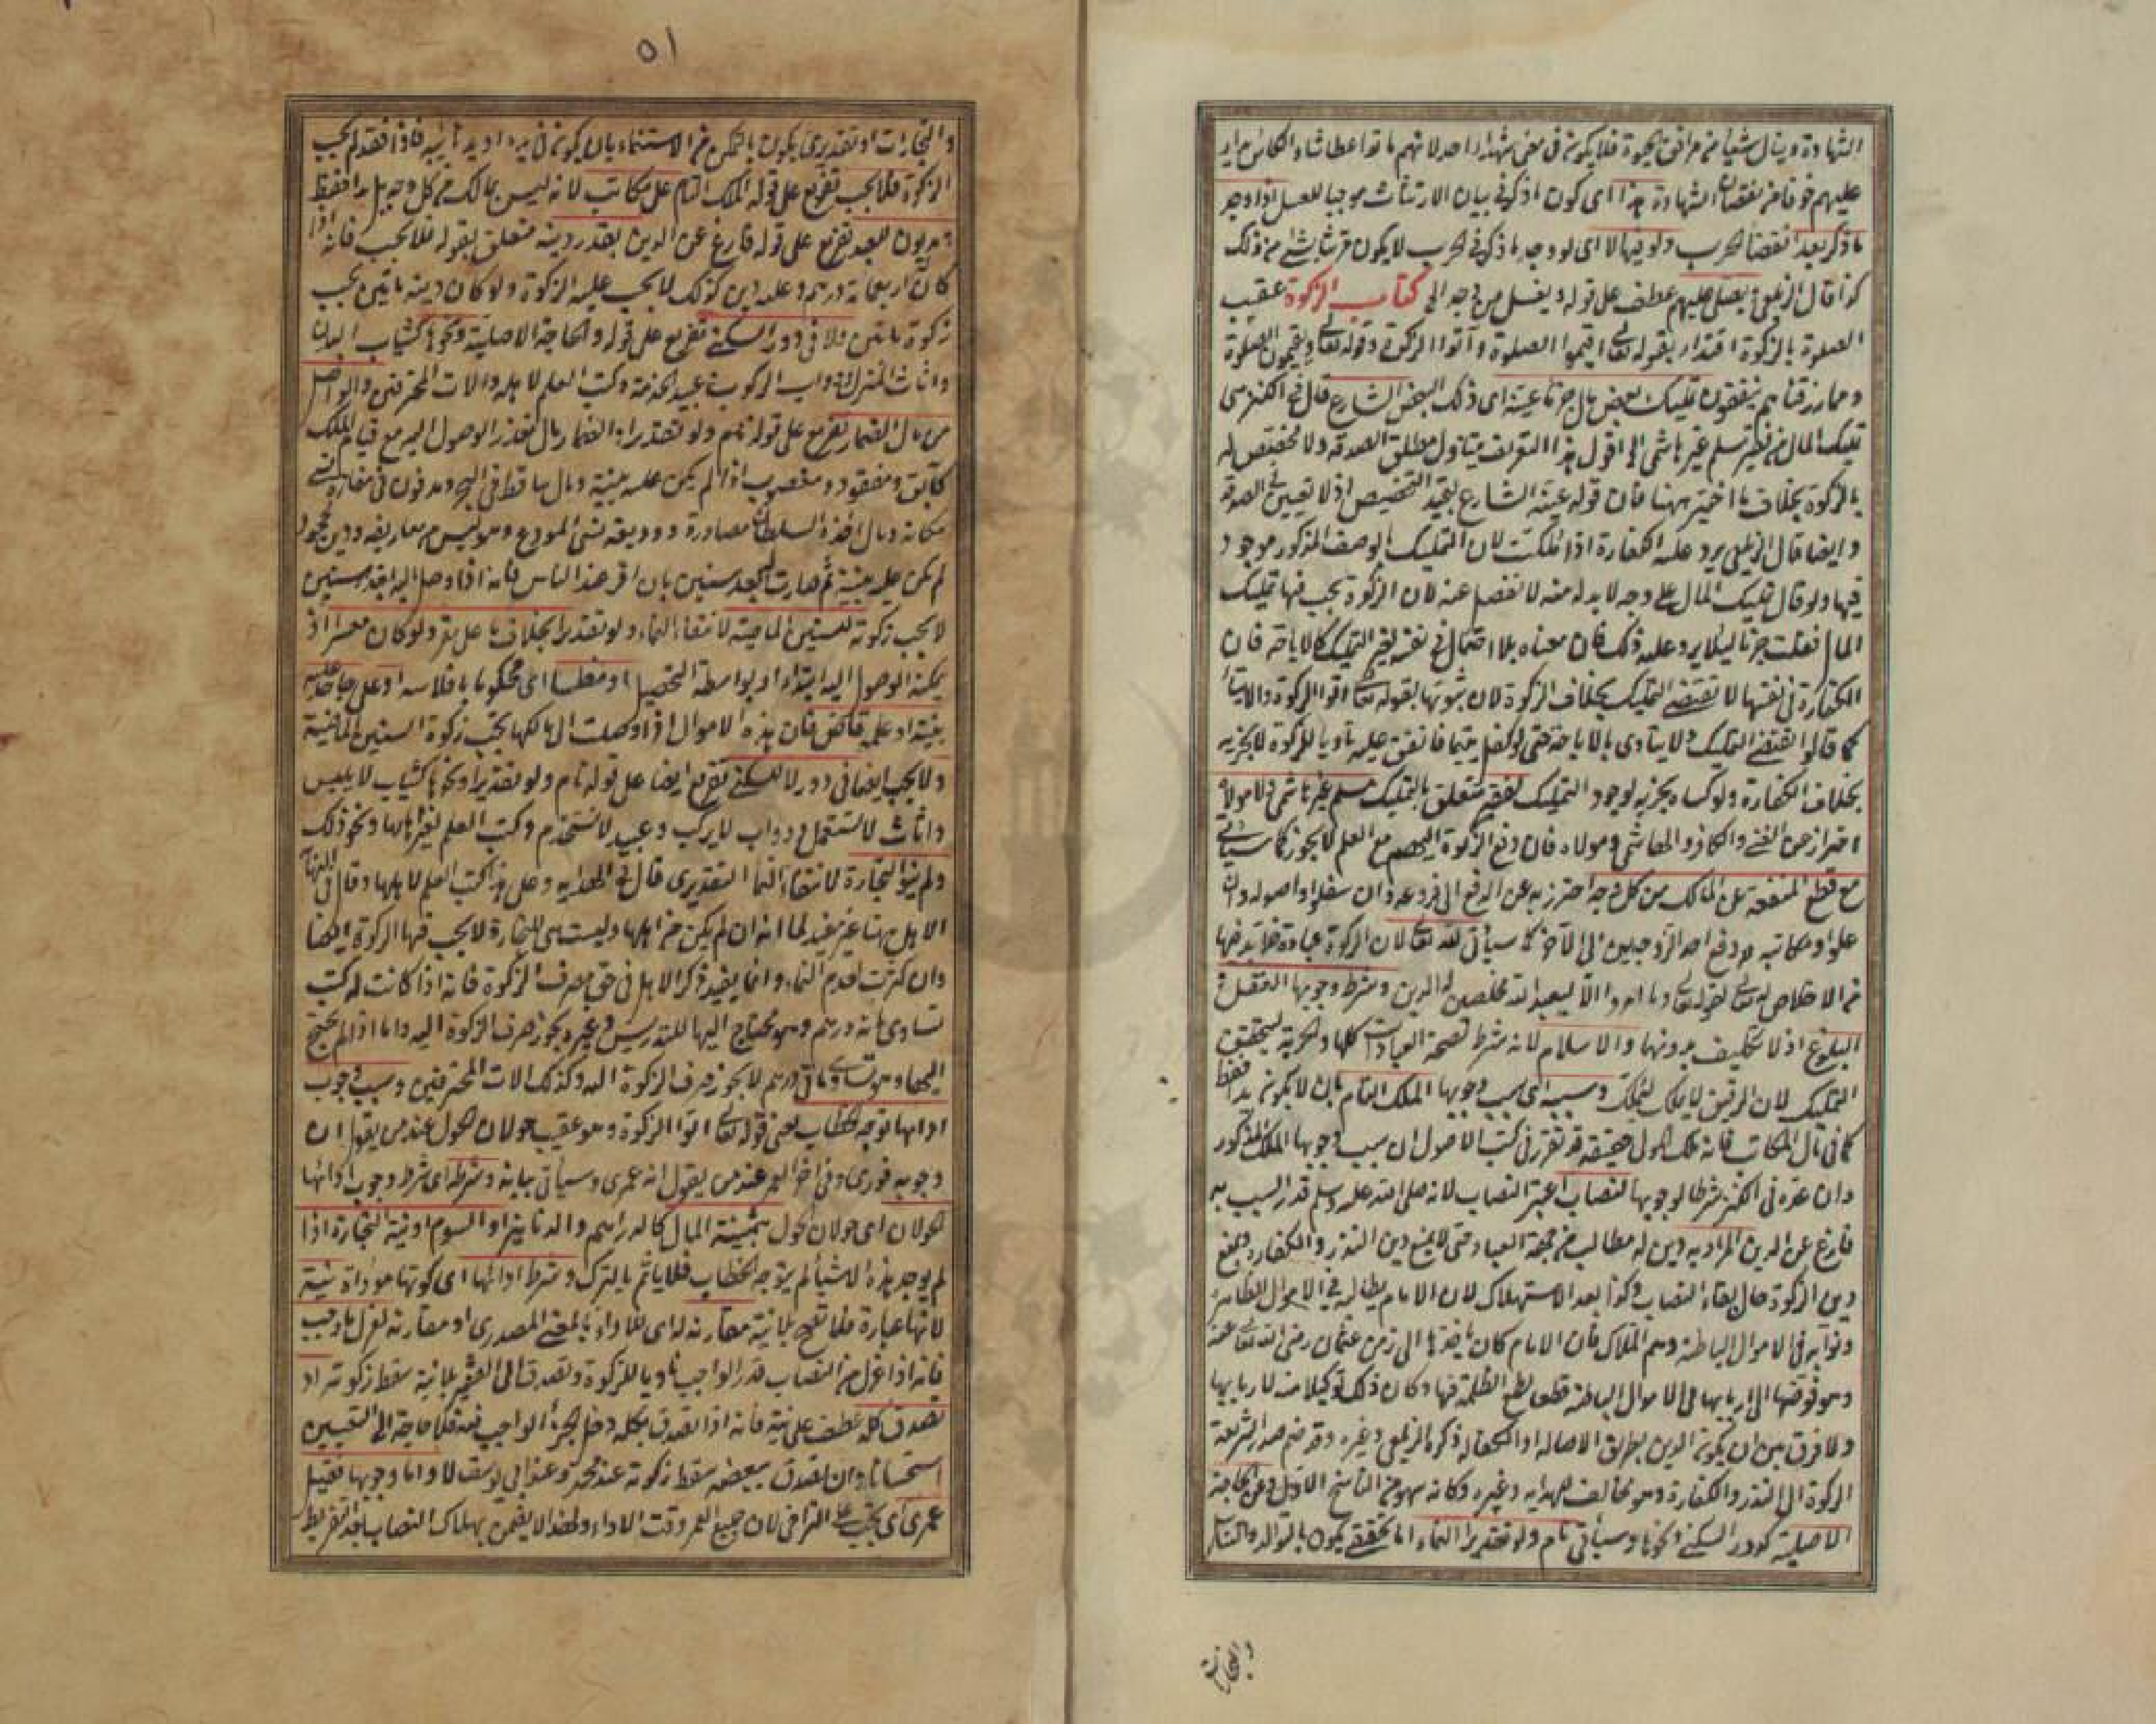 الشهادة وينال شيئا من مرافق الحيوة فلا يكون في معنى شهداء احد لانهم ماتوا عطاشا والكاس يدار
عليهم خوفا من نقصان الشهادة هذا اى كون ما ذكر في بيان الارتثاث موجبا للغسل اذا وجد
ما ذكر بعد انقضاء الحرب ولو فيها لا اى لو وجد ما ذكر في الحرب لا يكون مرتثا بشئ من ذلك
كذا قال الزيلعي ويصلى عليهم عطف على قوله ويغسل من وجد الخ كتاب الزكوة عقب
الصلوة بالزكوة اقتداء بقوله تعالى اقيموا الصلوة وآتوا الزكوة وقوله تعالى ويقيمون الصلوة
ومما رزقناهم ينفقون تمليك بعض مال جزما عينه اى ذلك البعض الشارع قال في الكنز هى
تمليك المال من فقير مسلم غير هاشمى الخ اقول هذا التعريف يتناول مطلق الصدقة ولا تختص له
بالزكوة بخلاف ما اختير ههنا فان قوله عينه الشارع يفيد التخصيص اذ لا تعيين في الصدقة
وايضا قال الزيلعي يرد عليه الكفارة اذا ملكت لان التمليك بالوصف المذكور موجود
فيها ولو قال تمليك المال على وجه لا بد له منه لانفصل عنه لان الزكوة يجب فيها تمليك
المال فقلت جزما لئلا يرد عليه ذلك فان معناه بلا احتمال في نفسه لغير التمليك كالاباحة فان
الكفارة في نفسها لا تقتضى التمليك بخلاف الزكوة لان ثبوتها بقوله تعالى اتوا الزكوة والايتاء
كما قالوا يقتضى التمليك ولا يتادى بالاباحة حتى لو كفل يتيما فانفق عليه ناويا للزكوة لا يجزيه
بخلاف الكفارة ولو كساه يجزيه لوجود التمليك لفقير متعلق بالتمليك مسلم غير هاشمى ولا مولاه
احتراز عن الغنى والكافر والهاشمى ومولاه فان دفع الزكوة اليهم مع العلم لا يجوز كما سيأتى
مع قطع المنفعة عن المالك من كل وجه احترز به عن الدفع الى فروعه وان سفلوا واصوله وان
علوا ومكاتبه ودفع احد الزوجين الى الآخر كما سيأتى لله تعالى لان الزكوة عبادة فلا بد فيها
من الاخلاص لله تعالى لقوله تعالى وما امروا الا ليعبدوا الله مخلصين له الدين وشرط وجوبها العقل و
البلوغ اذ لا تكليف بدونهما والاسلام لانه شرط لصحة العبادات كلها والحرية ليتحقق
التمليك لان الرقيق لا يملك ليملك وسببه اى سبب وجوبها الملك التام بان لا يكون يدا فقط
كما في مال المكاتب فانه ملك المولى حقيقة قد تقرر في كتب الاصول ان سبب وجوبها الملك المذكور
وان عده في الكنز شرطا لوجوبها لنصاب اعتبر النصاب لانه صلى الله عليه وسلم قدر السبب به
فارغ عن الدين المراد به دين له مطالب من جهة العباد حتى لا يمنع دين النذر والكفارة ويمنع
دين الزكوة حال بقاء النصاب وكذا بعد الاستهلاك لان الامام يطالبه في الاموال الظاهرة
ونوابه في الاموال الباطنة وهم الملاك فان الامام كان ياخذها الى زمن عثمان رضى الله تعالى عنه
وهو فوضها الى اربابها في الاموال الباطنة قطعا لطمع الظلمة فيها وكان ذلك توكيلا منه لاربابها
ولا فرق بين ان يكون الدين بطريق الاصالة او الكفالة ذكره الزيلعي وغيره وقد ضم صدر الشريعة
الزكوة الى النذر والكفارة وهو مخالف للهداية وغيره وكانه سهو من الناسخ الاول وعن الحاجة
الاصلية كدور السكنى ونحوها وسيأتى نام ولو تقديرا النماء اما تحقيقى يكون بالتوالد والتناسل
والتجارة
٥١
والتجارات او تقديرى يكون بالتمكن من الاستنماء بان يكون في يده او يد نائبه فاذا فقد لم تجب
الزكوة فلا تجب تفريع على قوله الملك التام على مكاتب لانه ليس بمالك من كل وجه بل يدا فقط
ومديون للعبد تفريع على قوله فارغ عن الدين بقدر دينه متعلق بقوله فلا تجب فانه اذا
كان له اربعمائة درهم وعليه دين كذلك لا تجب عليه الزكوة ولو كان دينه مائتين تجب
زكوة مائتين ولا في دور السكنى تفريع على قوله والحاجة الاصلية ونحوها كثياب البدن
واثاث المنزل ودواب الركوب وعبيد الخدمة وكتب العلم لاهله وآلات المحترفين والواصل
من مال الضمار تفريع على قوله نام ولو تقديرا الضمار مال تعذر الوصول اليه مع قيام الملك
كآبق ومفقود ومغصوب اذا لم يكن عليه بينة ومال ساقط في البحر ومدفون في مفازة نسى
مكانه ومال اخذه السلطان مصادرة ووديعة نسى المودع وهو ليس من معارفه ودين مجحود
لم تكن عليه بينة ثم صارت بعد سنين بان اقر عند الناس فانه اذا وصل اليه بعد سنين
لا تجب زكوته للسنين الماضية لانتفاء النماء ولو تقديرا بخلاف ما على مقر ولو كان معسرا اذ
يمكنه الوصول اليه ابتداء او بواسطة التحصيل او مفلسا اى محكوما بافلاسه او على جاحد عليه
بينة او علمه قاض فان هذه الاموال اذا وصلت الى مالكها تجب زكوة السنين الماضية
ولا تجب ايضا في دور لا للسكنى تفريع ايضا على قوله نام ولو تقديرا ونحوها كثياب لا يلبس
واثاث لا تستعمل ودواب لا يركب وعبيد لا تستخدم وكتب العلم لغير اهلها ونحو ذلك
ولم ينو التجارة لانتفاء النماء التقديرى قال في الهداية وعلى هذا كتب العلم لاهلها وقال في النهاية
الاهل ههنا غير مفيد لما انه ان لم يكن من اهلها وليست هى للتجارة لا تجب فيها الزكوة ايضا
وان كثرت لعدم النماء وانما يفيد ذكر الاهل في حق مصرف الزكوة فانه اذا كانت له كتب
تساوى مائة درهم وهو محتاج اليها للتدريس وغيره يجوز صرف الزكوة اليه واما اذا لم يحتج
اليها وهى تساوى مائتى درهم لا يجوز صرف الزكوة اليه وكذلك آلات المحترفين وسبب وجوب
ادائها توجه الخطاب يعنى قوله تعالى اتوا الزكوة وهو عقيب حولان الحول عند من يقول ان
وجوبه فورى وفي آخر العمر عند من يقول انه عمرى وسيأتى بيانه وشرطه اى شرط وجوب ادائها
الحولان اى حولان الحول بثمنية المال كالدراهم والدنانير او السوم او نية التجارة اذا
لم يوجد هذه الاشياء لم يتوجه الخطاب فلا يأثم بالترك وشرط ادائها اى كونها مؤداة نية
لانها عبادة فلا تصح بلا نية مقارنة له اى للاداء بالمعنى المصدرى او مقارنة لعزل ما وجب
فانه اذا عزل من النصاب قدر الواجب ناويا للزكوة وتصدق الى الفقير بلا نية سقط زكوته او
تصدق كله عطف على نية فانه اذا تصدق بكله دخل الجزء الواجب فيه فلا حاجة الى التعيين
استحسانا وان تصدق ببعضه سقط زكوته عند محمد وعند ابى يوسف لا واما وجوبها فقيل
عمرى اى تجب على التراخى لان جميع العمر وقت الاداء ولهذا لا يضمن بهلاك النصاب بعد التفريط